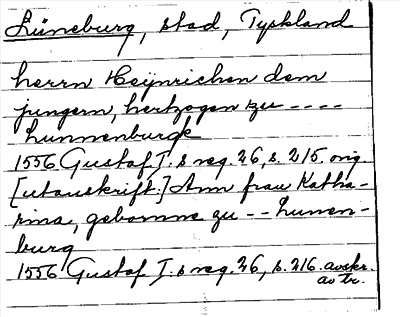 Lüneburg, stad, Tyskland
herrn Heijnrichen dem
jungern, hertzogen zu ----
Lunnenburgk
1556 Gustaf I:s reg. 26, s. 215. orig.
[utanskrift:] Ann frau Katha-
rina, gebornne zu -- Lunen-
burg
1556 Gustaf I:s reg. 26, s. 216. avskr.
av tr.